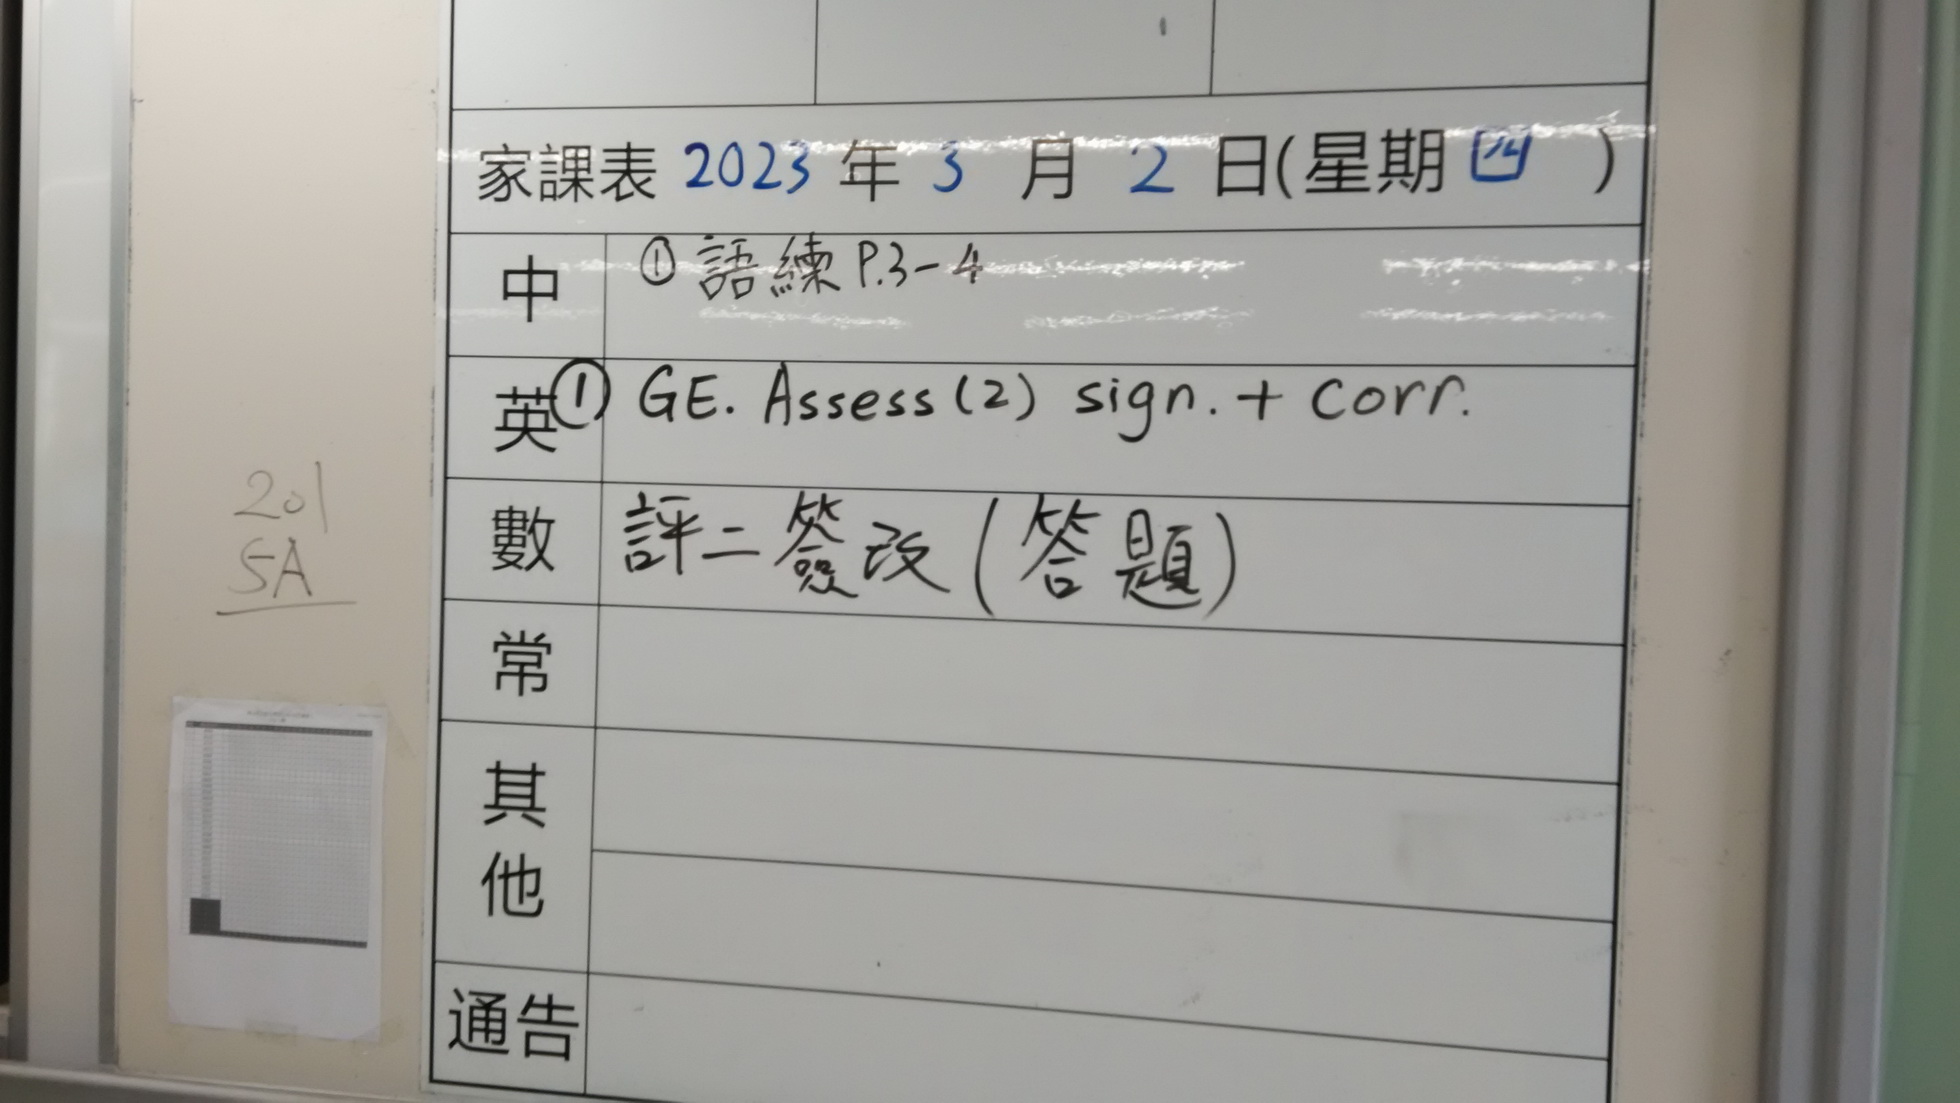 家課表 2023 年 3 月 2 日(星期四)
中 ① 語練 P.3-4
英 ① GE. Assess (2) sign. + corr.
數 評二簽改 (答題)
常
其他
通告
201
5A